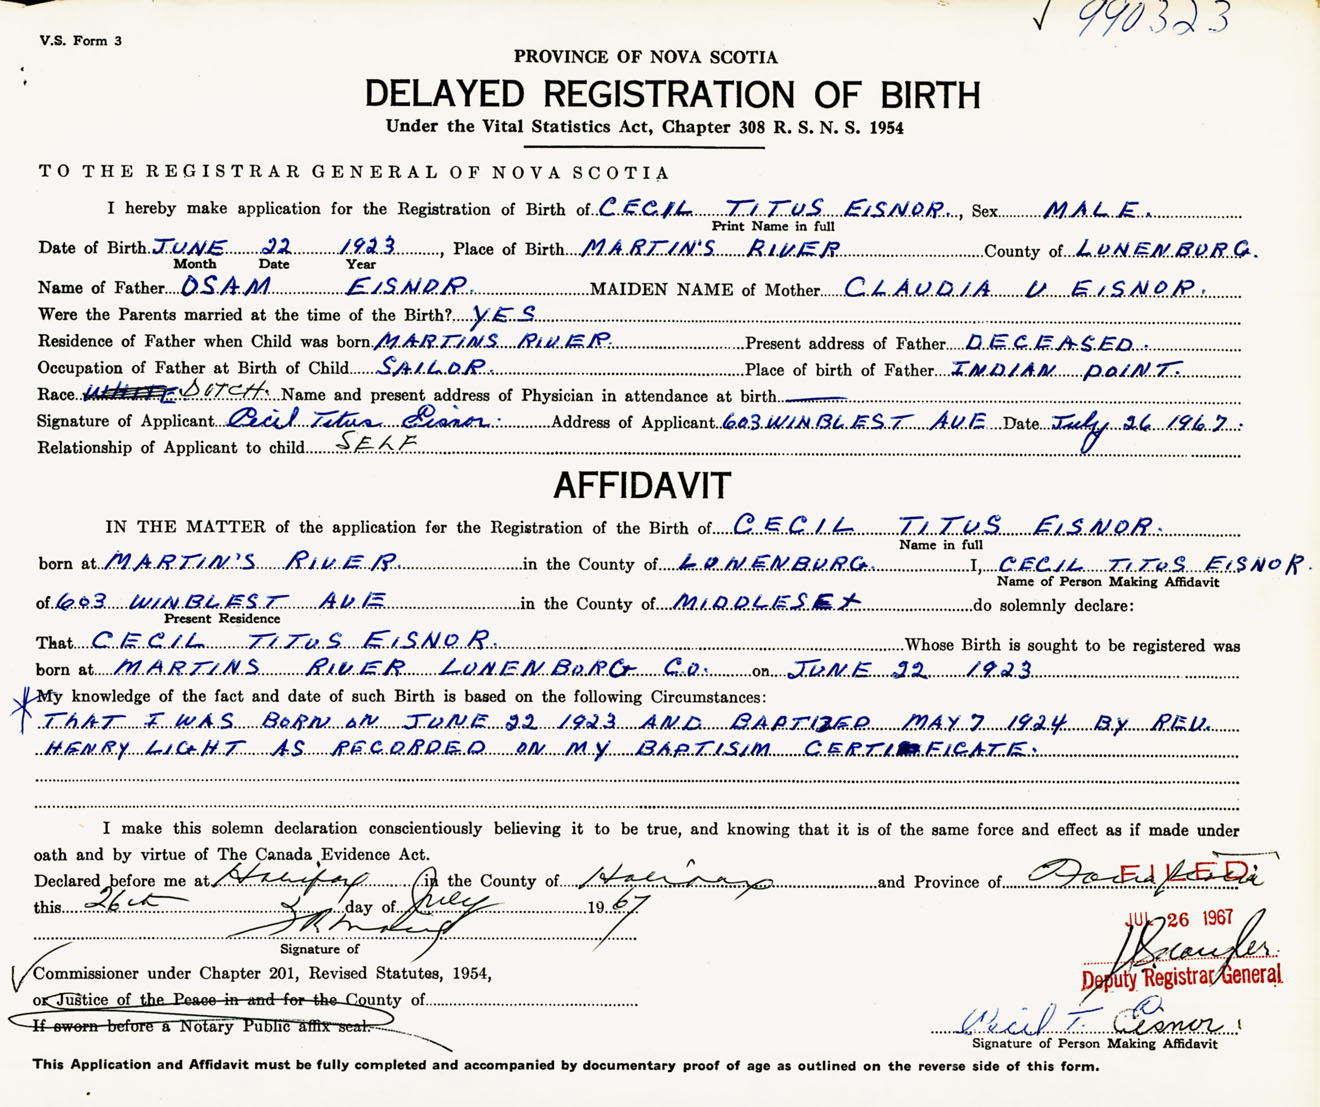 ✓ 990323
V.S. Form 3
PROVINCE OF NOVA SCOTIA
DELAYED REGISTRATION OF BIRTH
Under the Vital Statistics Act, Chapter 308 R. S. N. S. 1954
TO THE REGISTRAR GENERAL OF NOVA SCOTIA
I hereby make application for the Registration of Birth of CECIL TITUS EISNOR., Sex MALE.
Print Name in full
Date of Birth JUNE 22 1923, Place of Birth MARTIN'S RIVER County of LUNENBURG.
Month Date Year
Name of Father OSAM EISNOR. MAIDEN NAME of Mother CLAUDIA V EISNOR.
Were the Parents married at the time of the Birth? YES
Residence of Father when Child was born MARTINS RIVER. Present address of Father DECEASED.
Occupation of Father at Birth of Child SAILOR. Place of birth of Father INDIAN POINT.
Race WHITE DUTCH. Name and present address of Physician in attendance at birth
Signature of Applicant Cecil Titus Eisnor. Address of Applicant 603 WINBLEST AVE Date July 26 1967.
Relationship of Applicant to child SELF
AFFIDAVIT
IN THE MATTER of the application for the Registration of the Birth of CECIL TITUS EISNOR.
Name in full
born at MARTIN'S RIVER. in the County of LUNENBURG. I, CECIL TITUS EISNOR.
Name of Person Making Affidavit
of 603 WINBLEST AVE in the County of MIDDLESEX do solemnly declare:
Present Residence
That CECIL TITUS EISNOR. Whose Birth is sought to be registered was
born at MARTINS RIVER LUNENBURG CO. on JUNE 22 1923
My knowledge of the fact and date of such Birth is based on the following Circumstances:
THAT I WAS BORN ON JUNE 22 1923 AND BAPTIZED MAY 7 1924 BY REV.
HENRY LIGHT AS RECORDED ON MY BAPTISIM CERTIFICATE.
I make this solemn declaration conscientiously believing it to be true, and knowing that it is of the same force and effect as if made under
oath and by virtue of The Canada Evidence Act.
Declared before me at Halifax in the County of Halifax and Province of Nova Scotia
FILED
this 26th day of July 1967
JUL 26 1967
Signature of
Deputy Registrar General
Commissioner under Chapter 201, Revised Statutes, 1954,
or Justice of the Peace in and for the County of
If sworn before a Notary Public affix seal.
Cecil T. Eisnor
Signature of Person Making Affidavit
This Application and Affidavit must be fully completed and accompanied by documentary proof of age as outlined on the reverse side of this form.